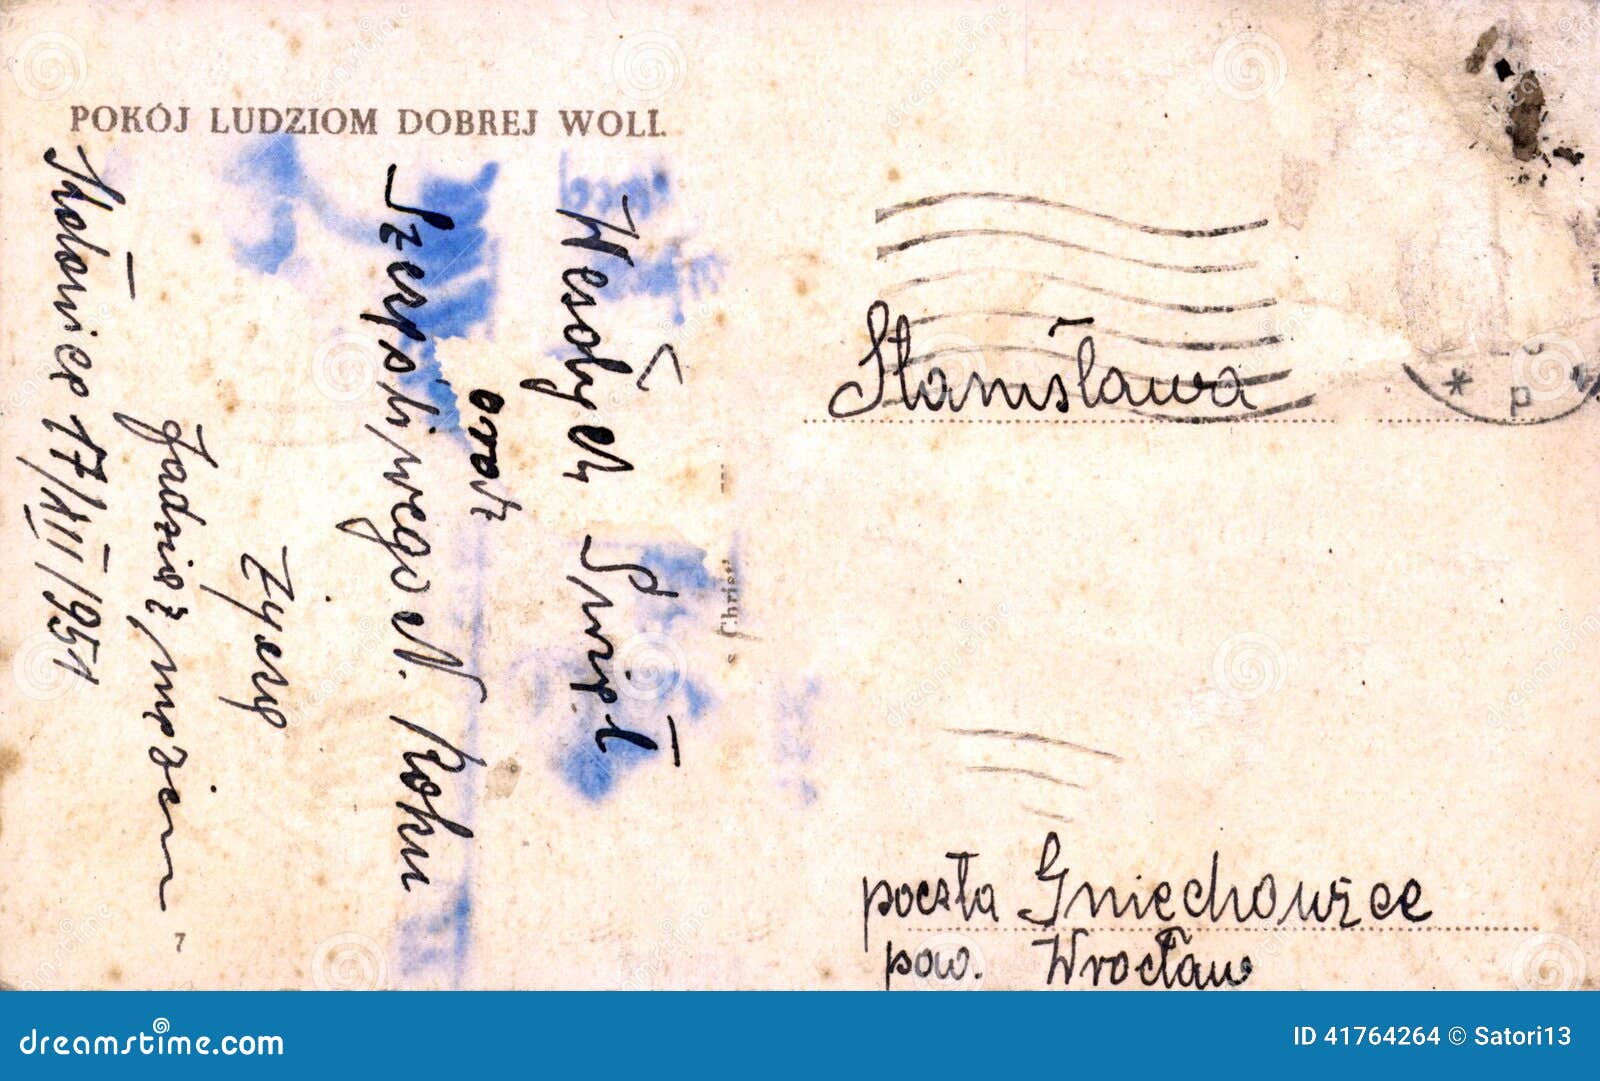 POKÓJ LUDZIOM DOBREJ WOLI.
Wesołych Świąt
oraz
Szczęśliwego N. Roku
życzę
Jadzia z mężem
17/XII/1951
7
Stanisława
poczta Gniechowice
pow. Wrocław
p
dreamstime.com
ID 41764264 © Satori13